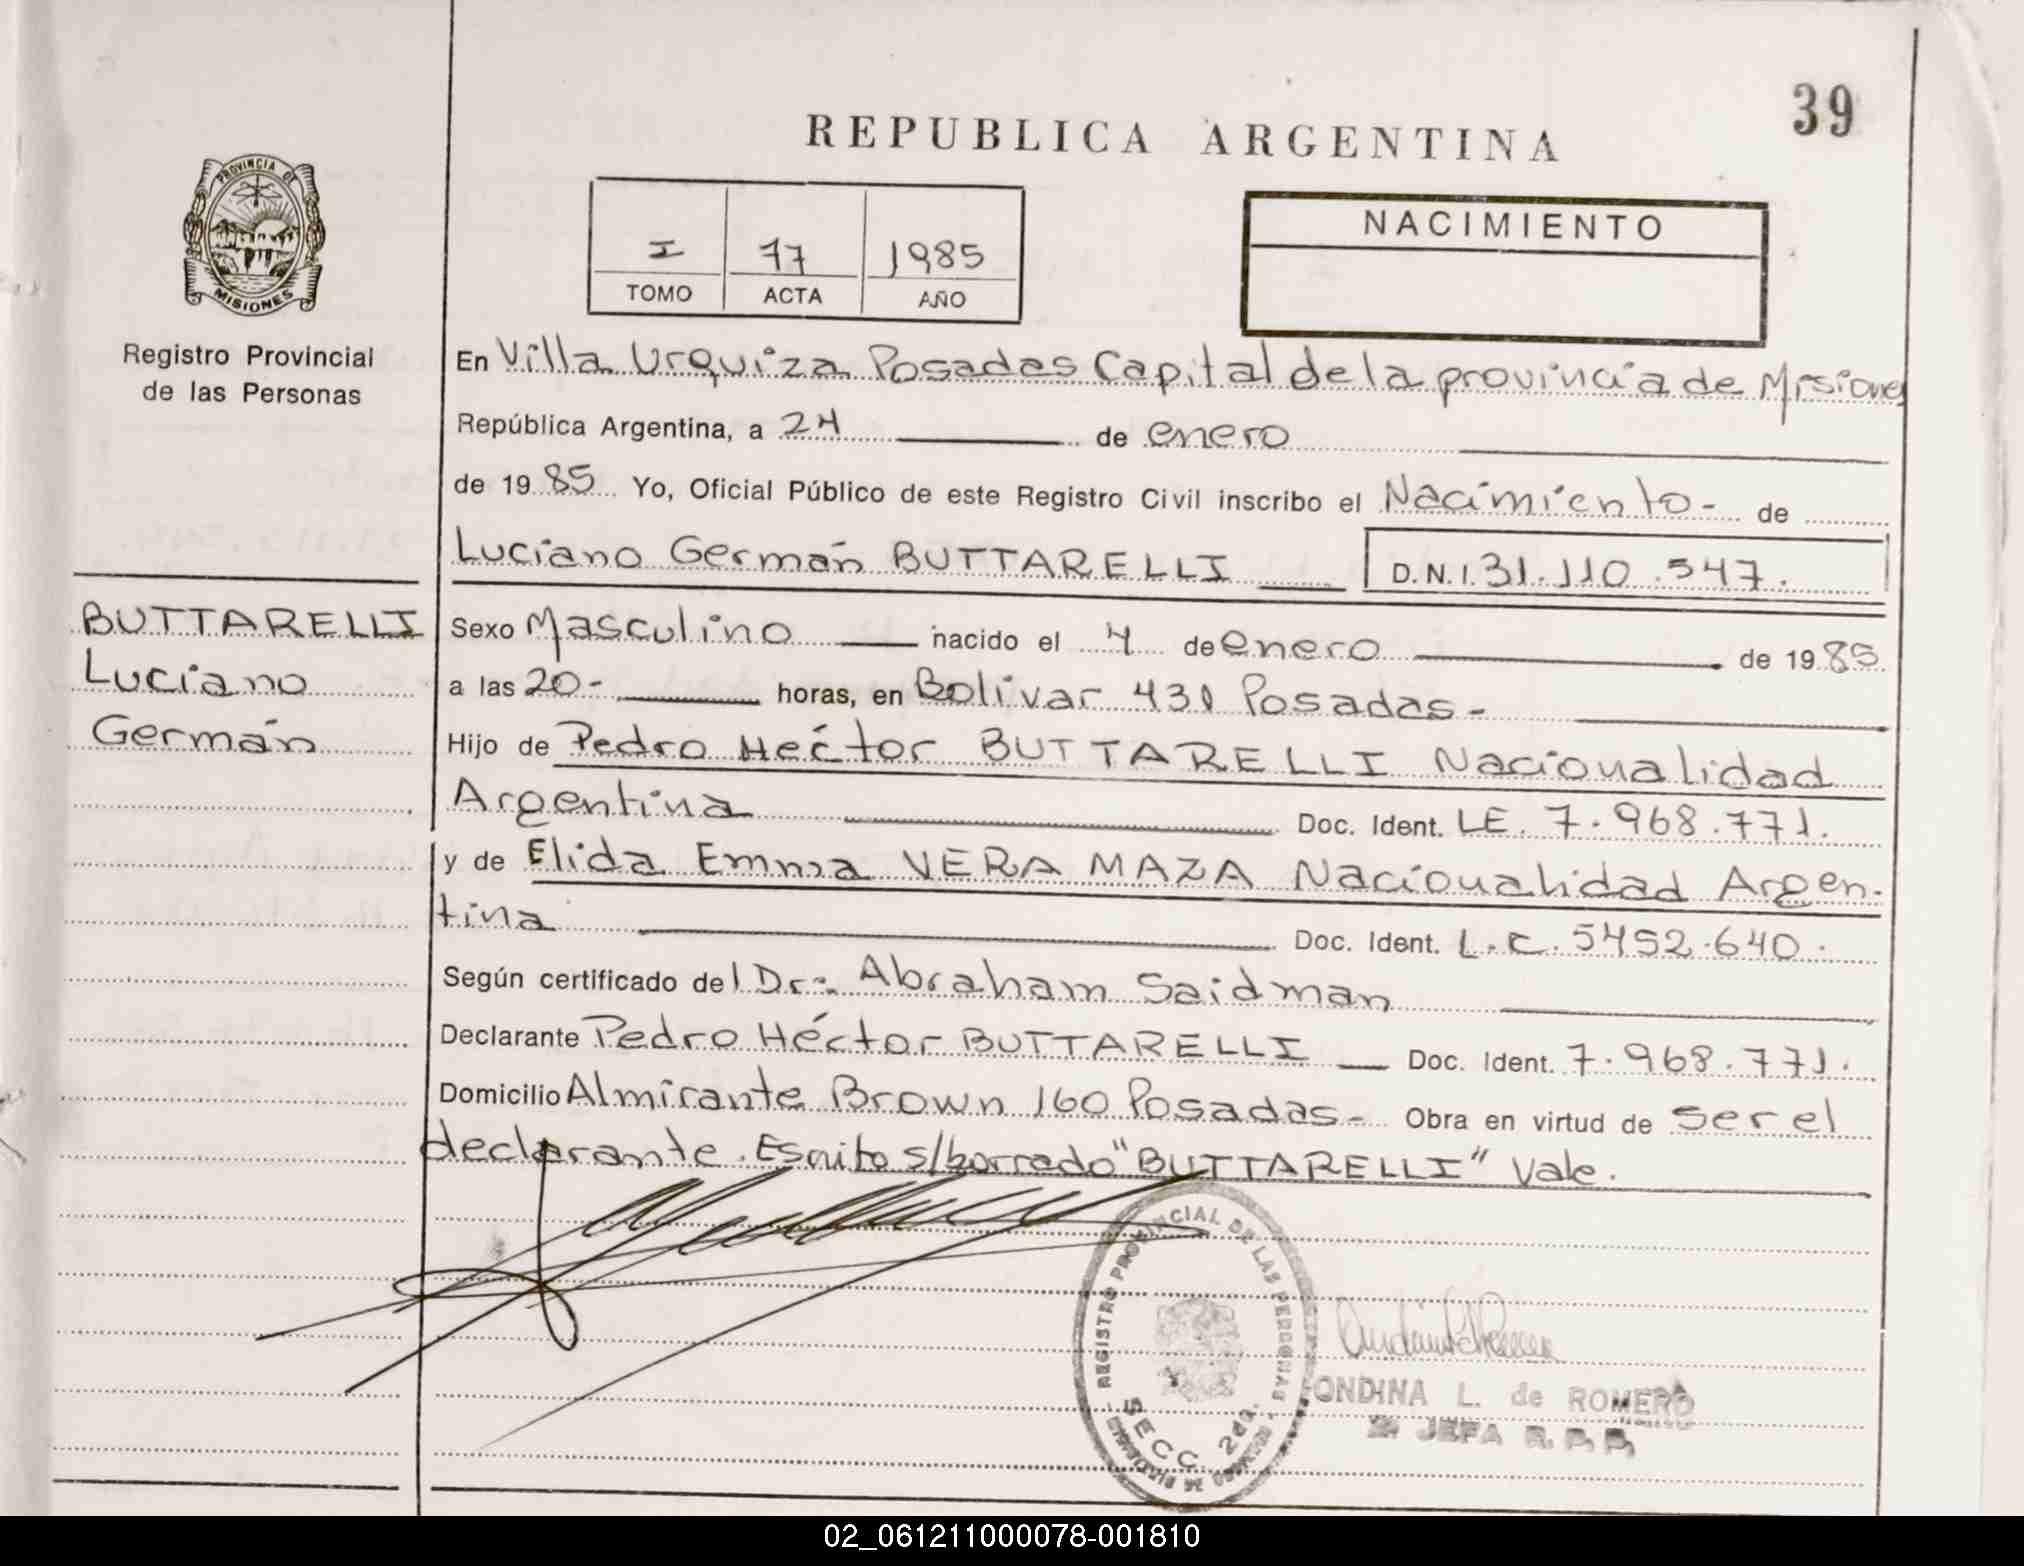 39
REPUBLICA ARGENTINA
PROVINCIA DE
MISIONES
Registro Provincial
de las Personas
I 77 1985
TOMO ACTA AÑO
NACIMIENTO
En Villa Urquiza Posadas Capital de la provincia de Misiones
República Argentina, a 24 de enero
de 1985 Yo, Oficial Público de este Registro Civil inscribo el Nacimiento- de
Luciano Germán BUTTARELLI D.N.I. 31.110.547.
BUTTARELLI
Luciano
Germán
Sexo Masculino nacido el 4 de enero de 1985
a las 20- horas, en Bolívar 431 Posadas-
Hijo de Pedro Héctor BUTTARELLI Nacionalidad
Argentina Doc. Ident. LE. 7.968.771.
y de Elida Emma VERA MAZA Nacionalidad Argen-
tina Doc. Ident. L.C. 5452.640.
Según certificado del Dr.: Abraham Saidman
Declarante Pedro Héctor BUTTARELLI Doc. Ident. 7.968.771.
Domicilio Almirante Brown 160 Posadas- Obra en virtud de ser el
declarante. Escrito s/borrado "BUTTARELLI" Vale.
REGISTRO PROVINCIAL DE LAS PERSONAS
SECC. 2da.
ONDINA L. de ROMERO
JEFA R. P. P.
02_061211000078-001810